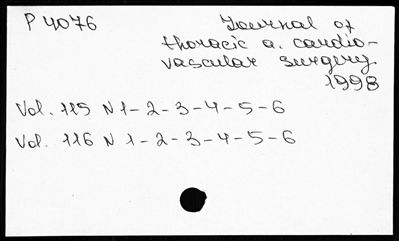 P 4076
Journal of
thoracic a. cardio-
vascular surgery
1998
Vol. 115 N 1-2-3-4-5-6
Vol. 116 N 1-2-3-4-5-6